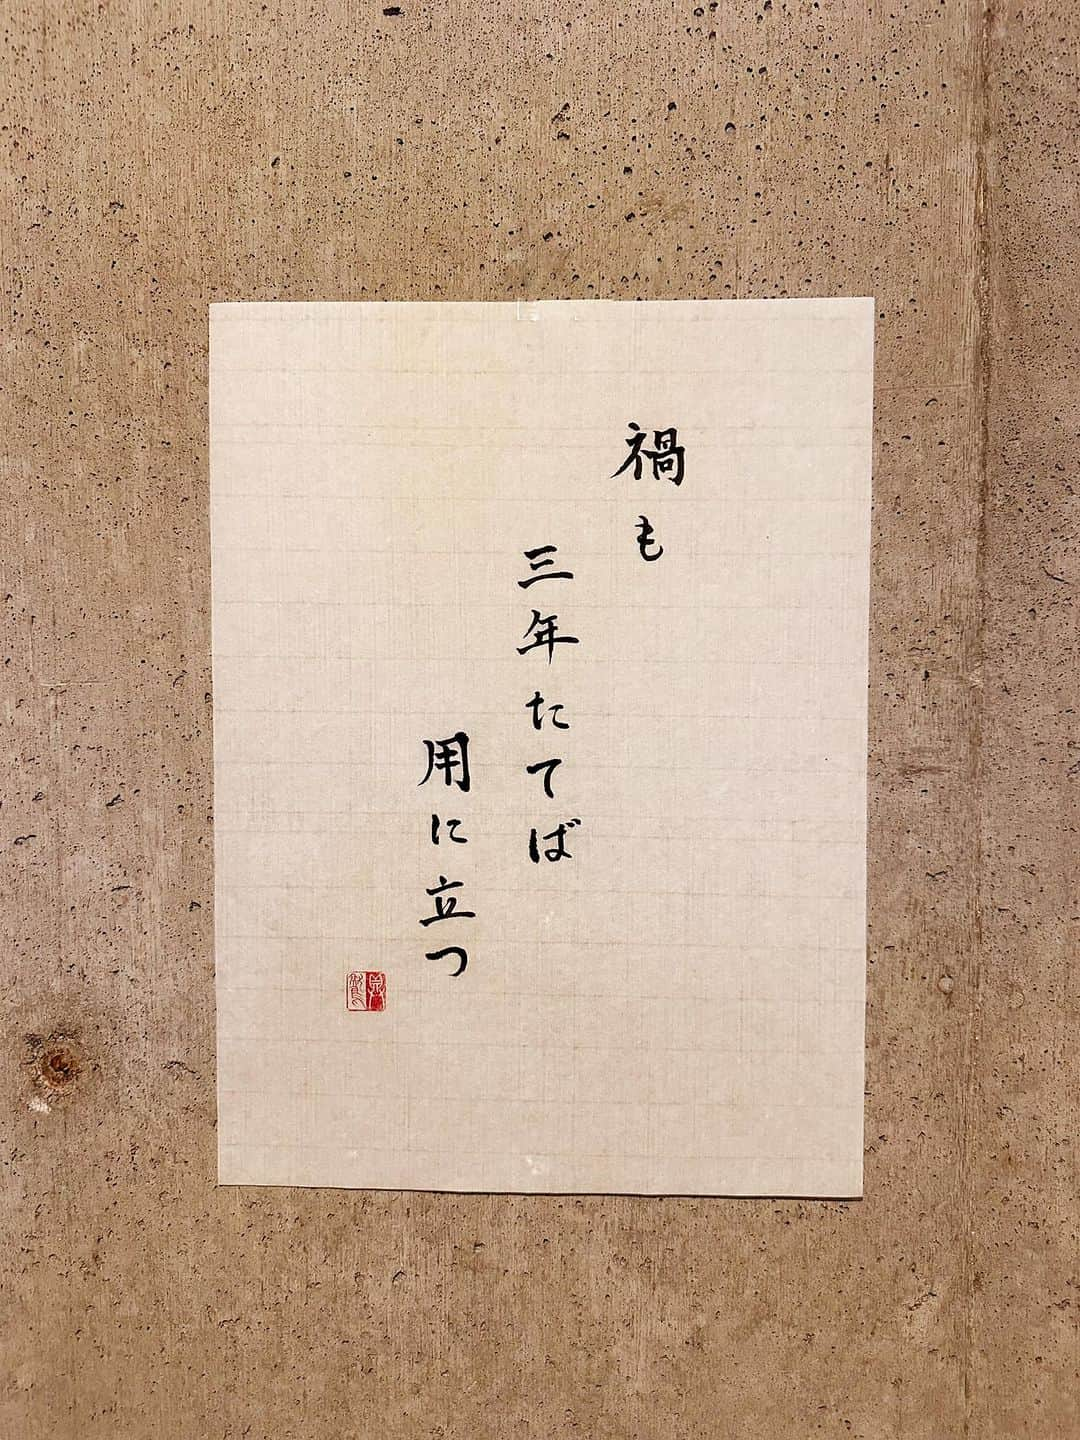 禍も
三年たてば
用に立つ